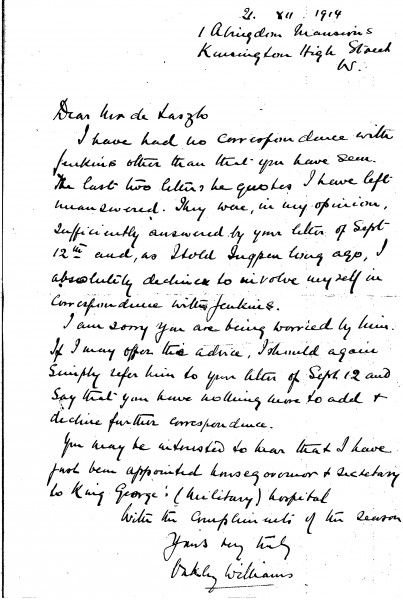 21. XII. 1914
1 Abingdon Mansions
Kensington High Street
W.
Dear Mr de Laszlo
I have had no correspondence with
Jenkins other than that you have seen.
The last two letters he quotes I have left
unanswered. They were, in my opinion,
sufficiently answered by your letter of Sept
12th and, as I told Ingpen long ago, I
absolutely declined to involve myself in
correspondence with Jenkins.
I am sorry you are being worried by him.
If I may offer the advice, I should again
simply refer him to your letter of Sept 12 and
say that you have nothing more to add &
decline further correspondence.
You may be interested to hear that I have
just been appointed housegovernor & secretary
to King George's (Military) hospital
With the compliments of the season
Yours very truly
Oakley Williams